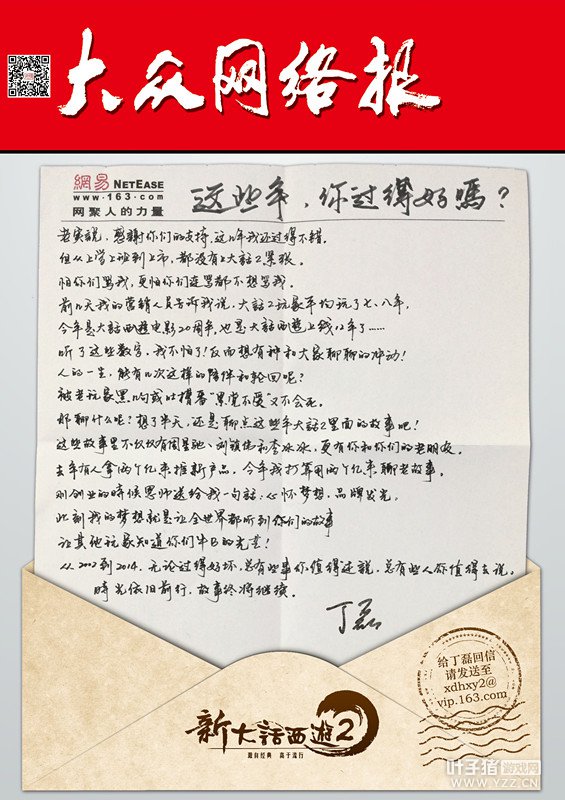 大众网络报
網易 NETEASE
www.163.com
网聚人的力量
这些年，你过得好嗎？
老实说，感谢你们的支持，这几年我还过得不错。
但从上学上班到上市，都没有上大话2累狠。
怕你们骂我，更怕你们连骂都不想骂我。
前几天我的营销人员告诉我说，大话2玩家平均玩了七、八年，
今年是大话西遊电影20周年，也是大话西遊上线12年了……
听了这些数字，我不怕了！反而想有种和大家聊聊的冲动！
人的一生，能有几次这样的陪伴和轮回呢？
被老玩家黑几句或比撂番“累觉不爱”又不会死。
那聊什么呢？想了半天，还是聊点这些年大话2里面的故事吧！
这些故事里不仅仅有周星驰、刘镇伟和李冰冰，更有你和你们的老朋友。
去年有人拿两个亿来推新产品，今年我打算用两个亿来聊老故事。
刚创业的時候恩师送给我一句話：心怀梦想，品牌发光。
此刻我的梦想就是让全世界都听到你们的故事
让其他玩家知道你们牛B的光芒！
从2002到2014，无论过得好坏，总有些事你值得还说，总有些人你值得去说。
時光依旧前行，故事终将继续。
丁磊
给丁磊回信
请发送至
xdhxy2@
vip.163.com
新大話西遊2
迎向经典 高于流行
叶子猪游戏网
www.YZZ.CN